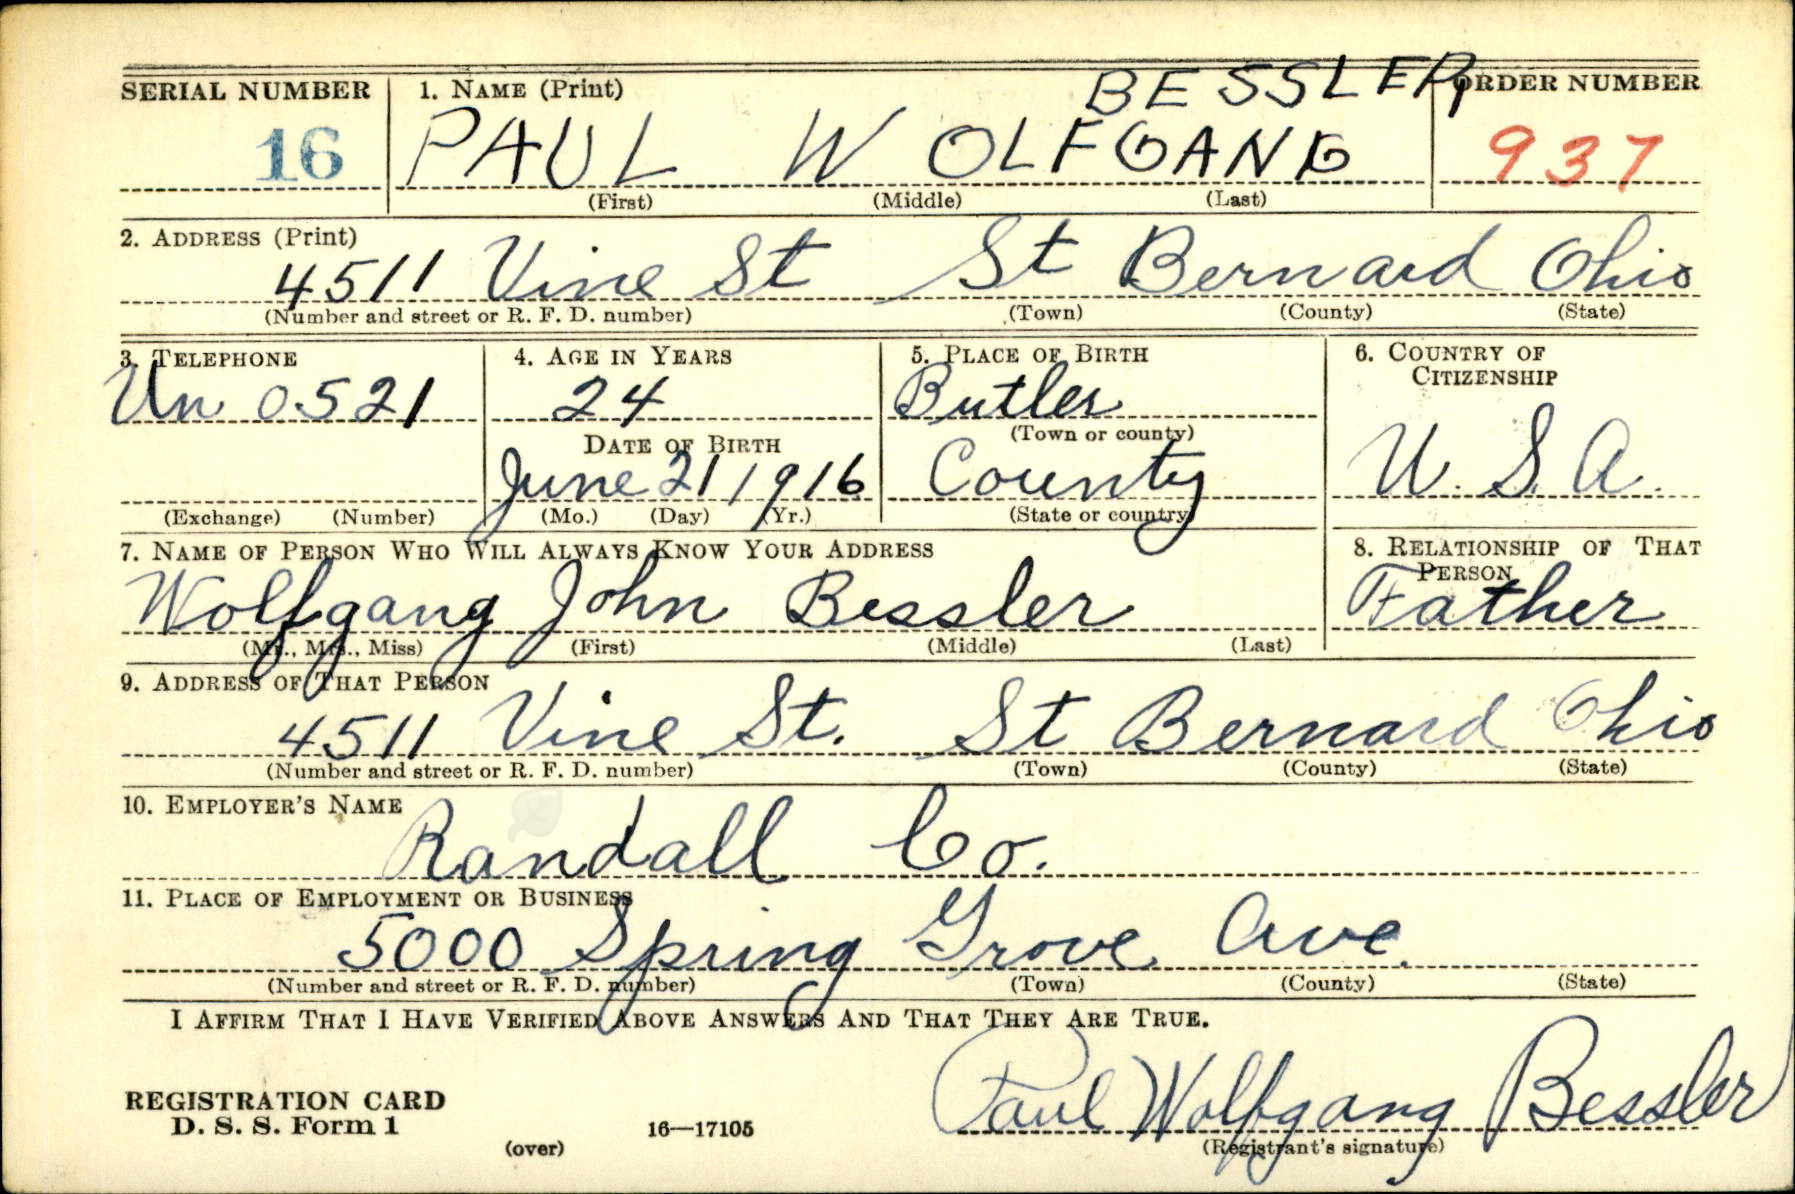 SERIAL NUMBER 1. NAME (Print) BESSLER ORDER NUMBER
16 PAUL WOLFGANG 937
(First) (Middle) (Last)
2. ADDRESS (Print)
4511 Vine St St Bernard Ohio
(Number and street or R. F. D. number) (Town) (County) (State)
3. TELEPHONE 4. AGE IN YEARS 5. PLACE OF BIRTH 6. COUNTRY OF
CITIZENSHIP
Un 0521 24 Butler
(Town or county)
DATE OF BIRTH
June 21 1916 County U. S. A.
(Exchange) (Number) (Mo.) (Day) (Yr.) (State or country)
7. NAME OF PERSON WHO WILL ALWAYS KNOW YOUR ADDRESS 8. RELATIONSHIP OF THAT
PERSON
Wolfgang John Bessler Father
(Mr., Mrs., Miss) (First) (Middle) (Last)
9. ADDRESS OF THAT PERSON
4511 Vine St. St Bernard Ohio
(Number and street or R. F. D. number) (Town) (County) (State)
10. EMPLOYER'S NAME
Randall Co.
11. PLACE OF EMPLOYMENT OR BUSINESS
5000 Spring Grove Ave.
(Number and street or R. F. D. number) (Town) (County) (State)
I AFFIRM THAT I HAVE VERIFIED ABOVE ANSWERS AND THAT THEY ARE TRUE.
REGISTRATION CARD
D. S. S. Form 1 16—17105 Paul Wolfgang Bessler
(over) (Registrant's signature)